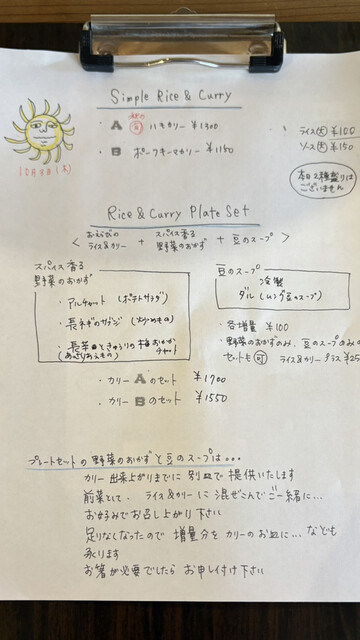 10月9日(木)
Simple Rice & Curry
・A ハモカリー ¥1300
・B ポークキーマカリー ¥1150
ライス(大) ¥100
ソース(大) ¥150
本日2種盛りは
ございません
Rice & Curry Plate Set
< おえらびの ライス&カリー + スパイス香る 野菜のおかず + 豆のスープ >
スパイス香る
野菜のおかず
・アルチャット (ポテトサラダ)
・長ネギのサブジ (炒めもの)
・長芋ときゅうりの梅おかか
(あっさりあえもの) チャト
豆のスープ
冷製
ダル (ムング豆のスープ)
・各増量 ¥100
・野菜のおかずのみ、豆のスープのみ
セットも 可 ライス&カリー プラス ¥25
・カリー Aのセット ¥1700
・カリー Bのセット ¥1550
プレートセットの野菜のおかずと豆のスープは...
カリー出来上がりまでに 別皿で提供いたします
前菜として、ライス&カリーに混ぜこんでご一緒に...
お好みでお召し上がり下さい
足りなくなったので 増量分を カリーのお皿に... なども
承ります
お箸が必要でしたら お申し付け下さい